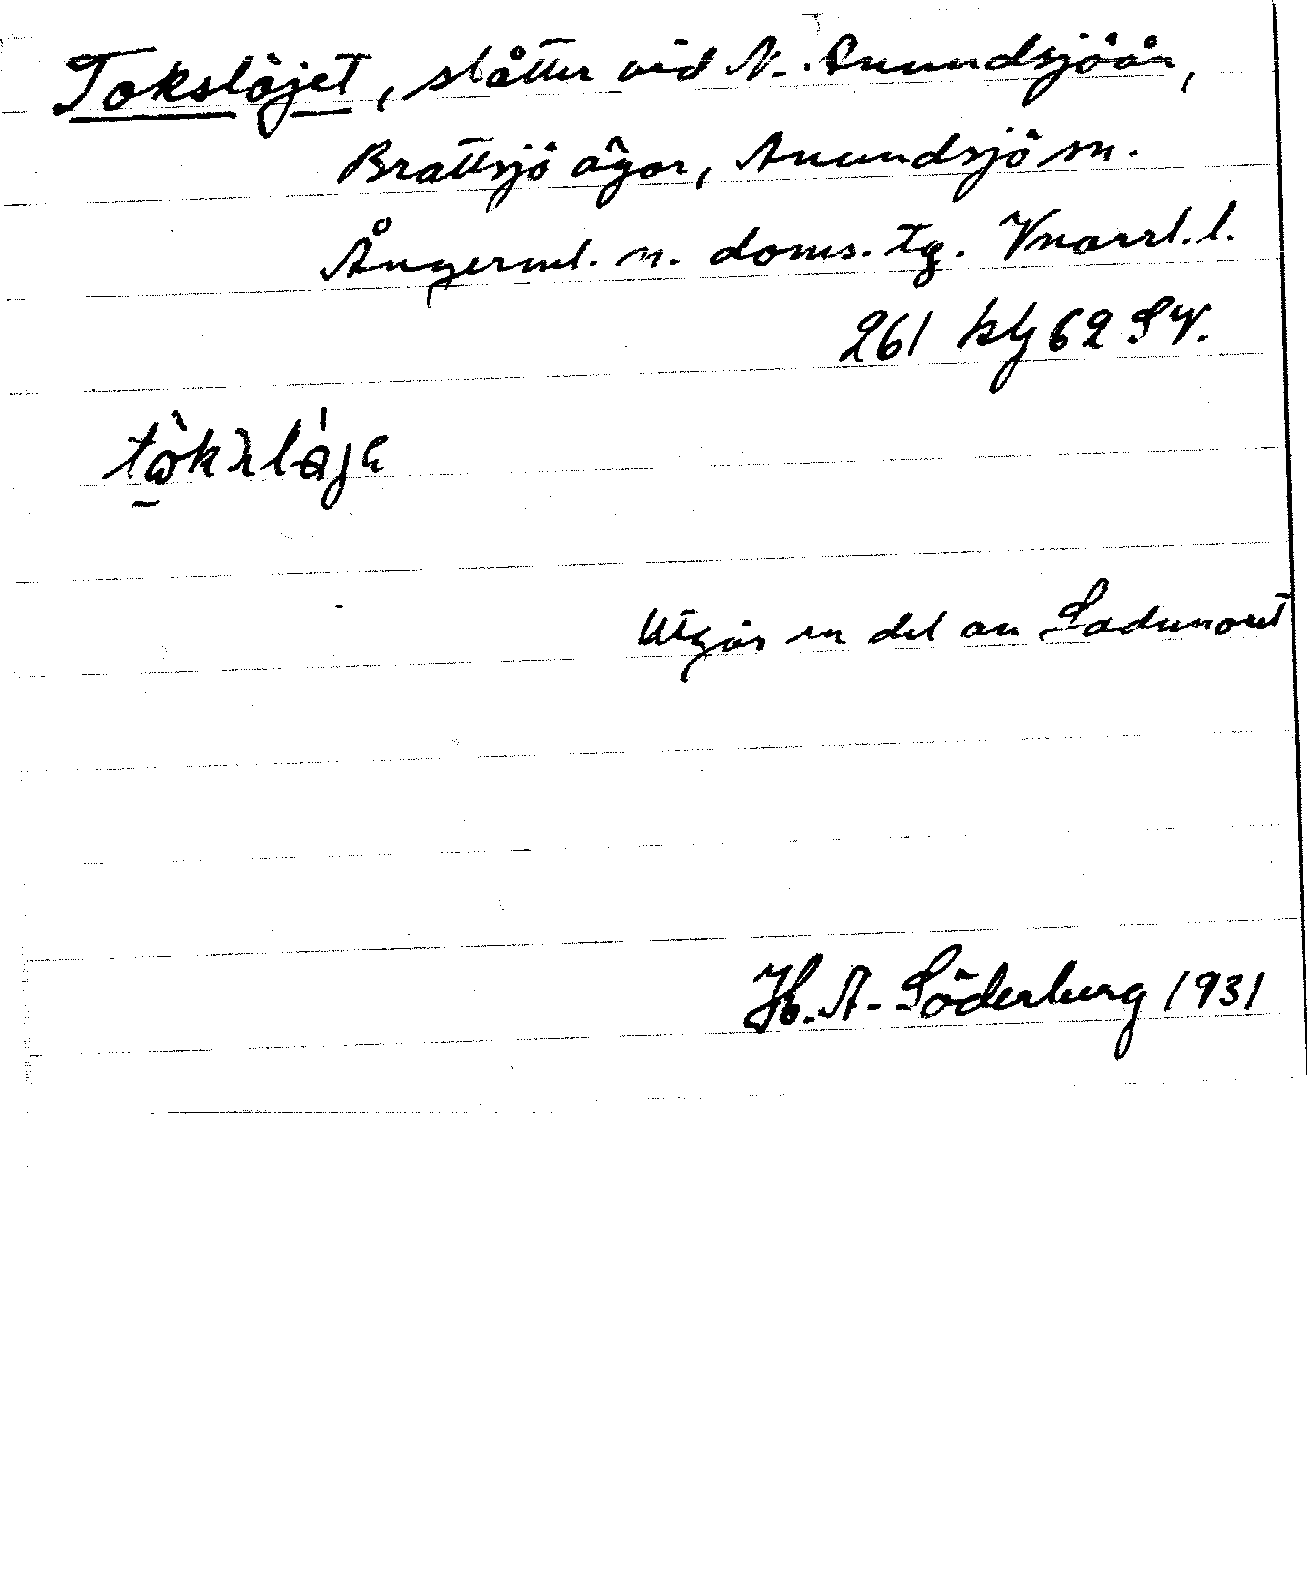 Tokslöjet, slåtter vid N. Anundsjöån,
Brattsjö ägor, Anundsjö sn.
Ångerml. n. doms. tg. Vnorrl. l.
261 klg 62 SV.
Utgör en del av Ladumoret
H. A. Söderberg 1931